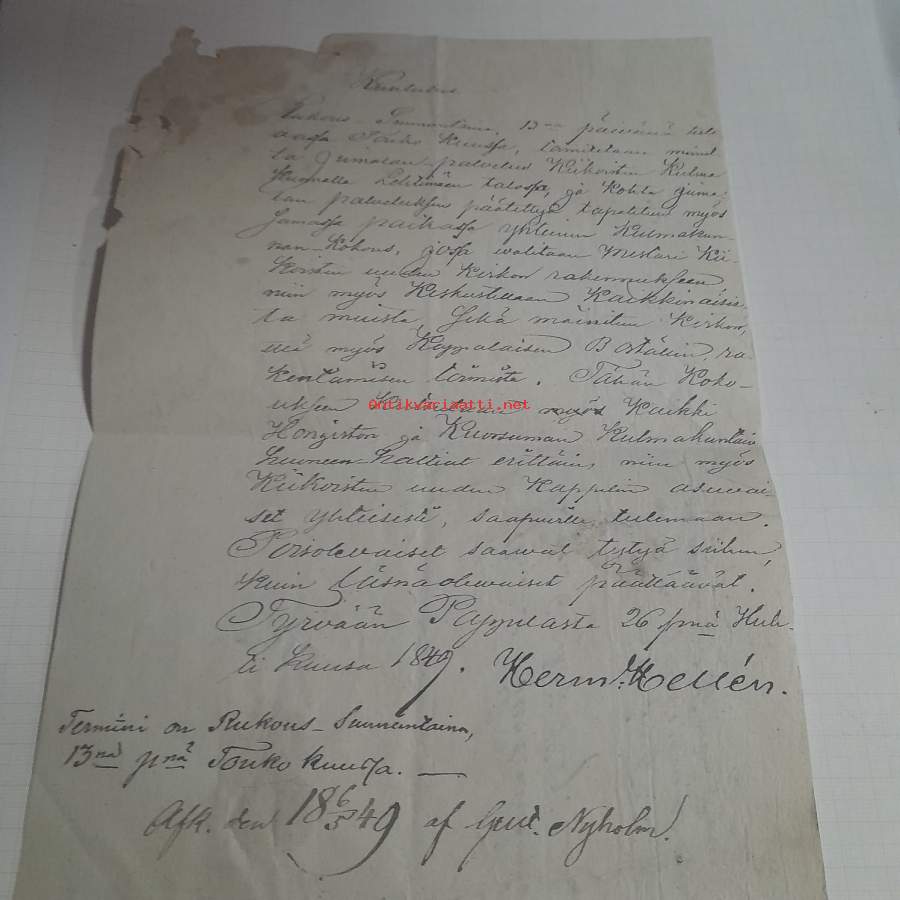 Kuulutus
Rukous-Sunnuntaina, 13na päivänä tule-
vassa Touko kuussa, toimitetaan
ta jumalan-palvelus Kiikoisten Kulma
Kunnalla Lehtimäen talossa, ja Kohta juma-
lan palveluksen päätettyä tapahtuu myös
samassa paikassa yhteinen Kulmakun-
nan-Kokous, jossa walitaan Mestari Kii-
koisten uuden Kirkon rakennukseen
niin myös Keskustellaan Kaikkinaisis-
ta muista, Sekä mainitun Kirkon,
että myös Kappalaisen Boställin, ra-
kentamisen toimista. Tähän Koko-
ukseen Kutsutaan myös Kaikki
Hongiston ja Kuorsuman Kulmakuntain
huoneen-haltiat erittäin, niin myös
Kiikoisten uuden Kappelin asuvai-
set yhteisesti, saapuville tulemaan.
Poisolevaiset saawat tytyä siihen,
kuin läsnäolewaiset päättäävät.
Tyrvään Pappilasta 26 pnä Huh-
ti kuusa 1849. Herm. Hellén.
Termini on Rukous-Sunnuntaina,
13na pnä Touko kuussa.
antikvariaatti.net
Afk. den 18 6/5 49 af Gust. Nyholm.